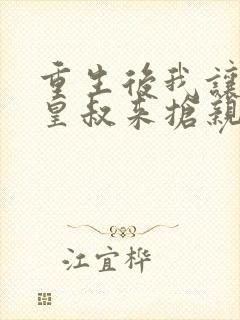 重生後我讓
皇叔來搶親
江宜桦